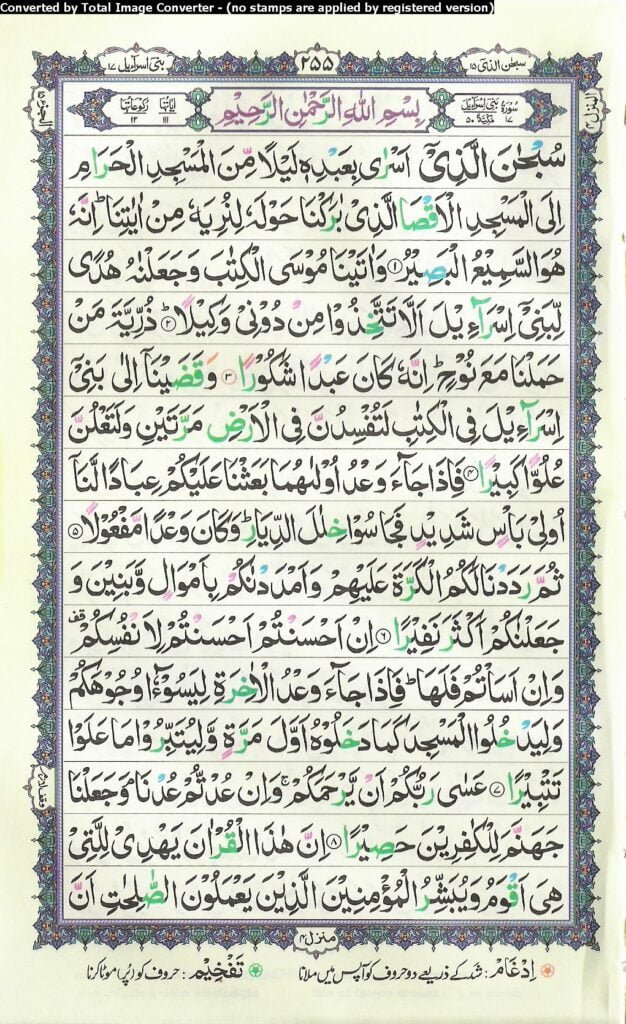 Converted by Total Image Converter - (no stamps are applied by registered version)
سبحٰن الذی ۱۵
۲۵۵
بنی اسرآءیل ۱۷
سورۃ بنی اسرآءیل
۱۷ مکیۃ ۵۰
بِسْمِ اللهِ الرَّحْمٰنِ الرَّحِيْمِ
اٰیاتہا ۱۱۱
رکوعاتہا ۱۲
سُبْحٰنَ الَّذِيْٓ اَسْرٰى بِعَبْدِهٖ لَيْلًا مِّنَ الْمَسْجِدِ الْحَرَامِ
اِلَى الْمَسْجِدِ الْاَقْصَا الَّذِيْ بٰرَكْنَا حَوْلَهٗ لِنُرِيَهٗ مِنْ اٰيٰتِنَا ؕ اِنَّهٗ
هُوَ السَّمِيْعُ الْبَصِيْرُ ۱ وَاٰتَيْنَا مُوْسَى الْكِتٰبَ وَجَعَلْنٰهُ هُدًى
لِّبَنِيْٓ اِسْرَآءِيْلَ اَلَّا تَتَّخِذُوْا مِنْ دُوْنِيْ وَكِيْلًا ۲ ذُرِّيَّةَ مَنْ
حَمَلْنَا مَعَ نُوْحٍ ؕ اِنَّهٗ كَانَ عَبْدًا شَكُوْرًا ۳ وَقَضَيْنَآ اِلٰى بَنِيْٓ
اِسْرَآءِيْلَ فِي الْكِتٰبِ لَتُفْسِدُنَّ فِي الْاَرْضِ مَرَّتَيْنِ وَلَتَعْلُنَّ
عُلُوًّا كَبِيْرًا ۴ فَاِذَا جَآءَ وَعْدُ اُوْلٰىهُمَا بَعَثْنَا عَلَيْكُمْ عِبَادًا لَّنَآ
اُولِيْ بَاْسٍ شَدِيْدٍ فَجَاسُوْا خِلٰلَ الدِّيَارِ ؕ وَكَانَ وَعْدًا مَّفْعُوْلًا ۵
ثُمَّ رَدَدْنَا لَكُمُ الْكَرَّةَ عَلَيْهِمْ وَاَمْدَدْنٰكُمْ بِاَمْوَالٍ وَّبَنِيْنَ وَ
جَعَلْنٰكُمْ اَكْثَرَ نَفِيْرًا ۶ اِنْ اَحْسَنْتُمْ اَحْسَنْتُمْ لِاَنْفُسِكُمْ قف
وَاِنْ اَسَاْتُمْ فَلَهَا ؕ فَاِذَا جَآءَ وَعْدُ الْاٰخِرَةِ لِيَسُوْٓءٗا وُجُوْهَكُمْ
وَلِيَدْخُلُوا الْمَسْجِدَ كَمَا دَخَلُوْهُ اَوَّلَ مَرَّةٍ وَّلِيُتَبِّرُوْا مَا عَلَوْا
تَتْبِيْرًا ۷ عَسٰى رَبُّكُمْ اَنْ يَّرْحَمَكُمْ ۚ وَاِنْ عُدْتُّمْ عُدْنَا ۘ وَجَعَلْنَا
جَهَنَّمَ لِلْكٰفِرِيْنَ حَصِيْرًا ۸ اِنَّ هٰذَا الْقُرْاٰنَ يَهْدِيْ لِلَّتِيْ
هِيَ اَقْوَمُ وَيُبَشِّرُ الْمُؤْمِنِيْنَ الَّذِيْنَ يَعْمَلُوْنَ الصّٰلِحٰتِ اَنَّ
منزل ۴
اِدْغَام : شد کے ذریعے دو حروف کو آپس میں ملانا
تَفْخِیْم : حروف کو (پُر) موٹا کرنا